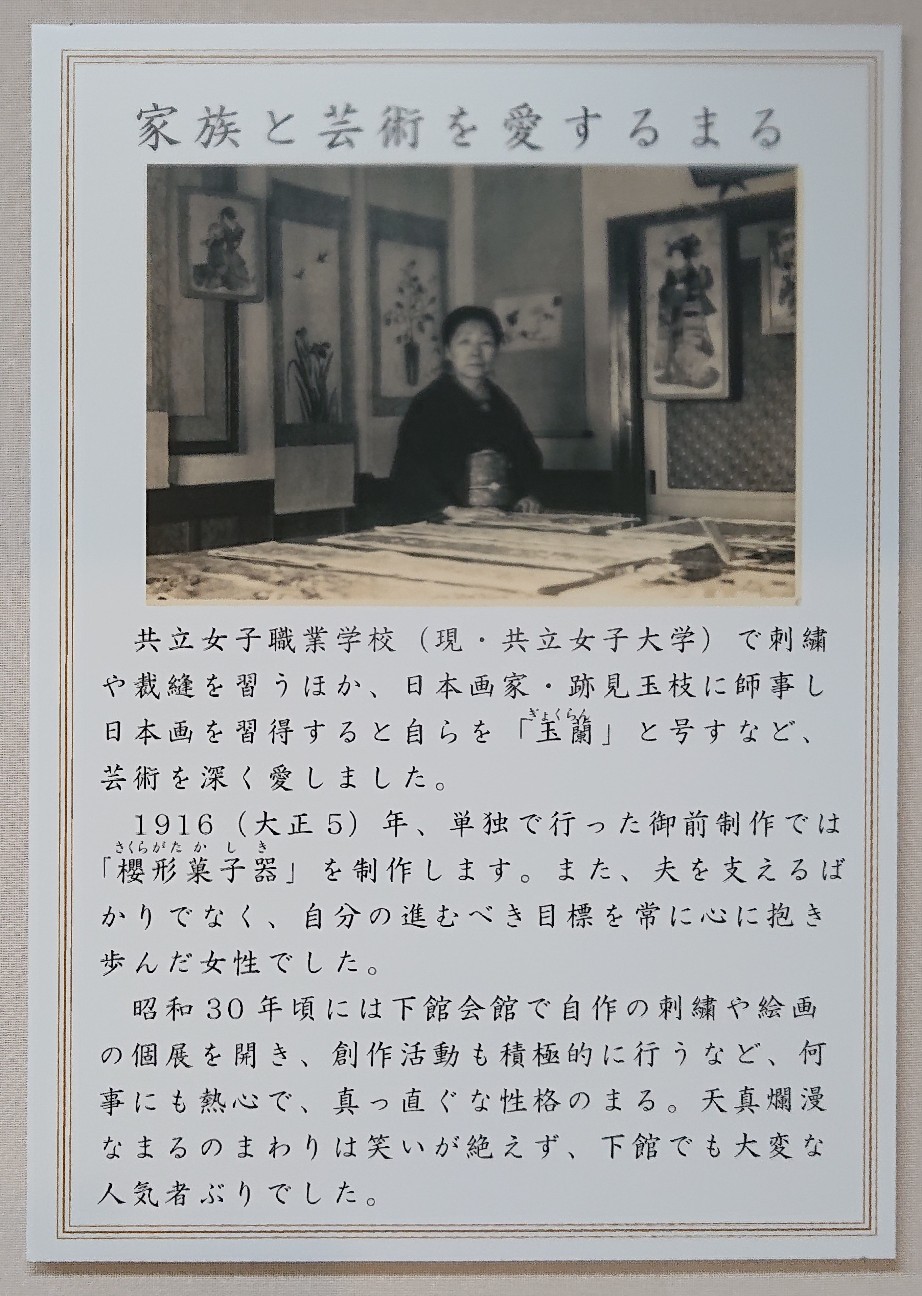 家族と芸術を愛するまる
共立女子職業学校（現・共立女子大学）で刺繍
や裁縫を習うほか、日本画家・跡見玉枝に師事し
ぎょくらん
日本画を習得すると自らを「玉蘭」と号すなど、
芸術を深く愛しました。
1916（大正5）年、単独で行った御前制作では
さくらがたかしき
「櫻形菓子器」を制作します。また、夫を支えるば
かりでなく、自分の進むべき目標を常に心に抱き
歩んだ女性でした。
昭和30年頃には下館会館で自作の刺繍や絵画
の個展を開き、創作活動も積極的に行うなど、何
事にも熱心で、真っ直ぐな性格のまる。天真爛漫
なまるのまわりは笑いが絶えず、下館でも大変な
人気者ぶりでした。